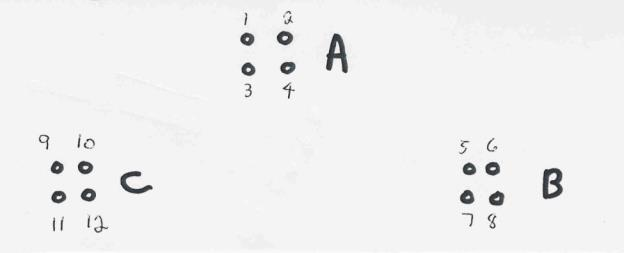 1 2
A
3 4
9 10
C
11 12
5 6
B
7 8